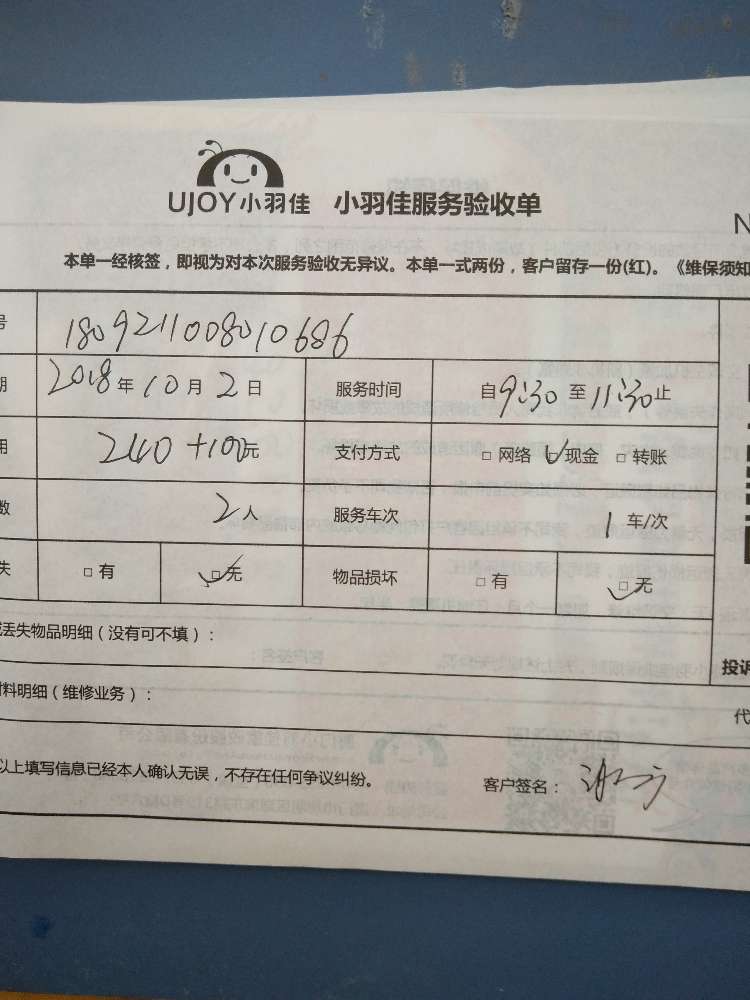 UJOY小羽佳 小羽佳服务验收单
N
本单一经核签，即视为对本次服务验收无异议。本单一式两份，客户留存一份(红)。《维保须知
号 1809211008010686
期 2018年10月2日 服务时间 自9:30至11:30止
用 240+100元 支付方式 □网络 □现金 □转账
数 2人 服务车次 1车/次
失 □有 □无 物品损坏 □有 □无
或丢失物品明细（没有可不填）：
投诉
材料明细（维修业务）：
代
以上填写信息已经本人确认无误，不存在任何争议纠纷。 客户签名：